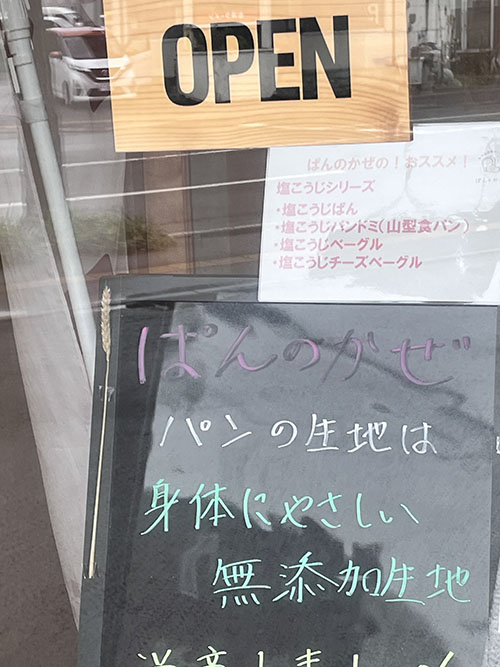 OPEN
ぱんのかぜの！おススメ！
塩こうじシリーズ
・塩こうじぱん
・塩こうじパンドミ(山型食パン)
・塩こうじベーグル
・塩こうじチーズベーグル
ぱんのかぜ
パンの生地は
身体にやさしい
無添加生地